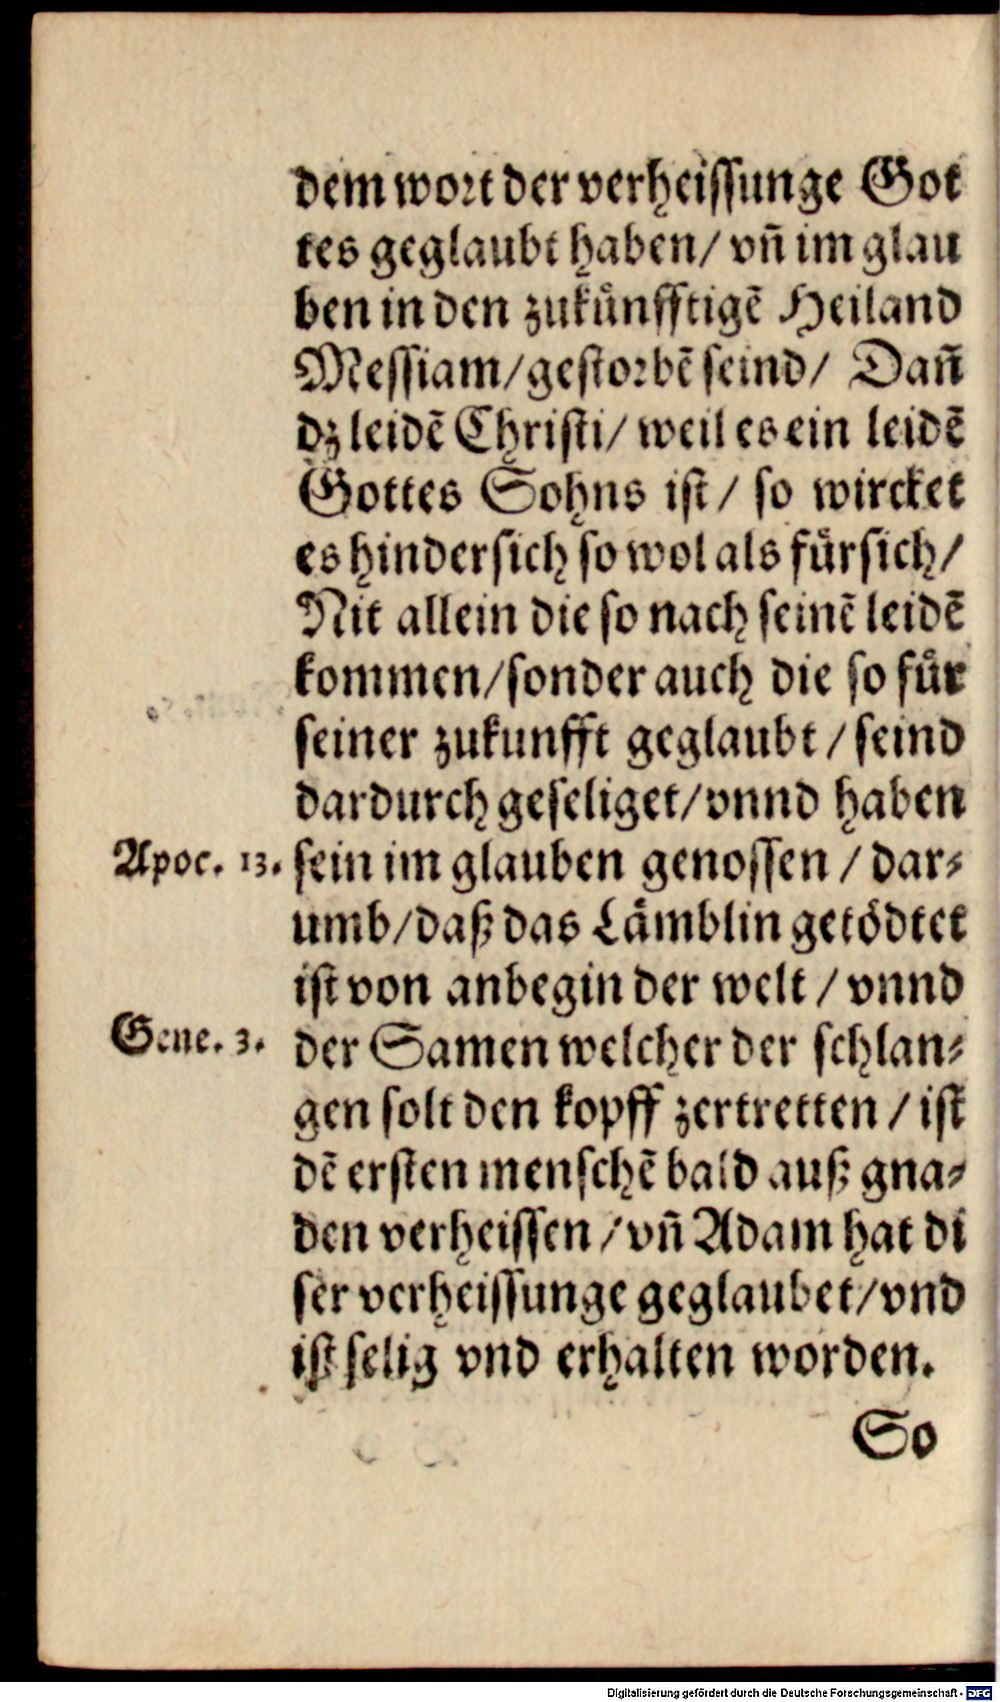 dem wort der verheissunge Got
tes geglaubt haben/ vñ im glau
ben in den zukünfftigē Heiland
Messiam/gestorbē seind/ Dañ
dz leidē Christi/ weil es ein leidē
Gottes Sohns ist/ so wircket
es hindersich so wol als fürsich/
Nit allein die so nach seinē leidē
kommen/sonder auch die so für
seiner zukunfft geglaubt/ seind
dardurch geseliget/vnnd haben
Apoc. 13. sein im glauben genossen/ dar-
umb/daß das Lämblin getödtet
ist von anbegin der welt/ vnnd
Gene. 3. der Samen welcher der schlan-
gen solt den kopff zertretten/ ist
dē ersten menschē bald auß gna-
den verheissen/vñ Adam hat di
ser verheissunge geglaubet/vnd
ist selig vnd erhalten worden.
So
Digitalisierung gefördert durch die Deutsche Forschungsgemeinschaft - DFG